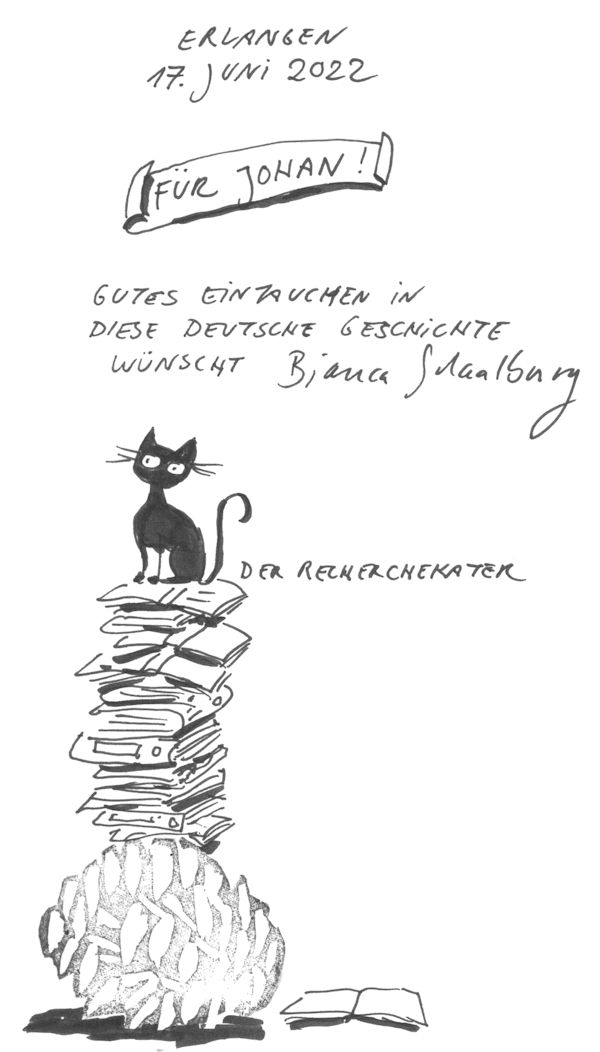 ERLANGEN
17. JUNI 2022
FÜR JOHAN!
GUTES EINTAUCHEN IN
DIESE DEUTSCHE GESCHICHTE
WÜNSCHT Bianca Schaalburg
DER RECHERCHEKATER